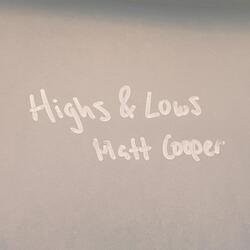 Highs & Lows
Matt Cooper